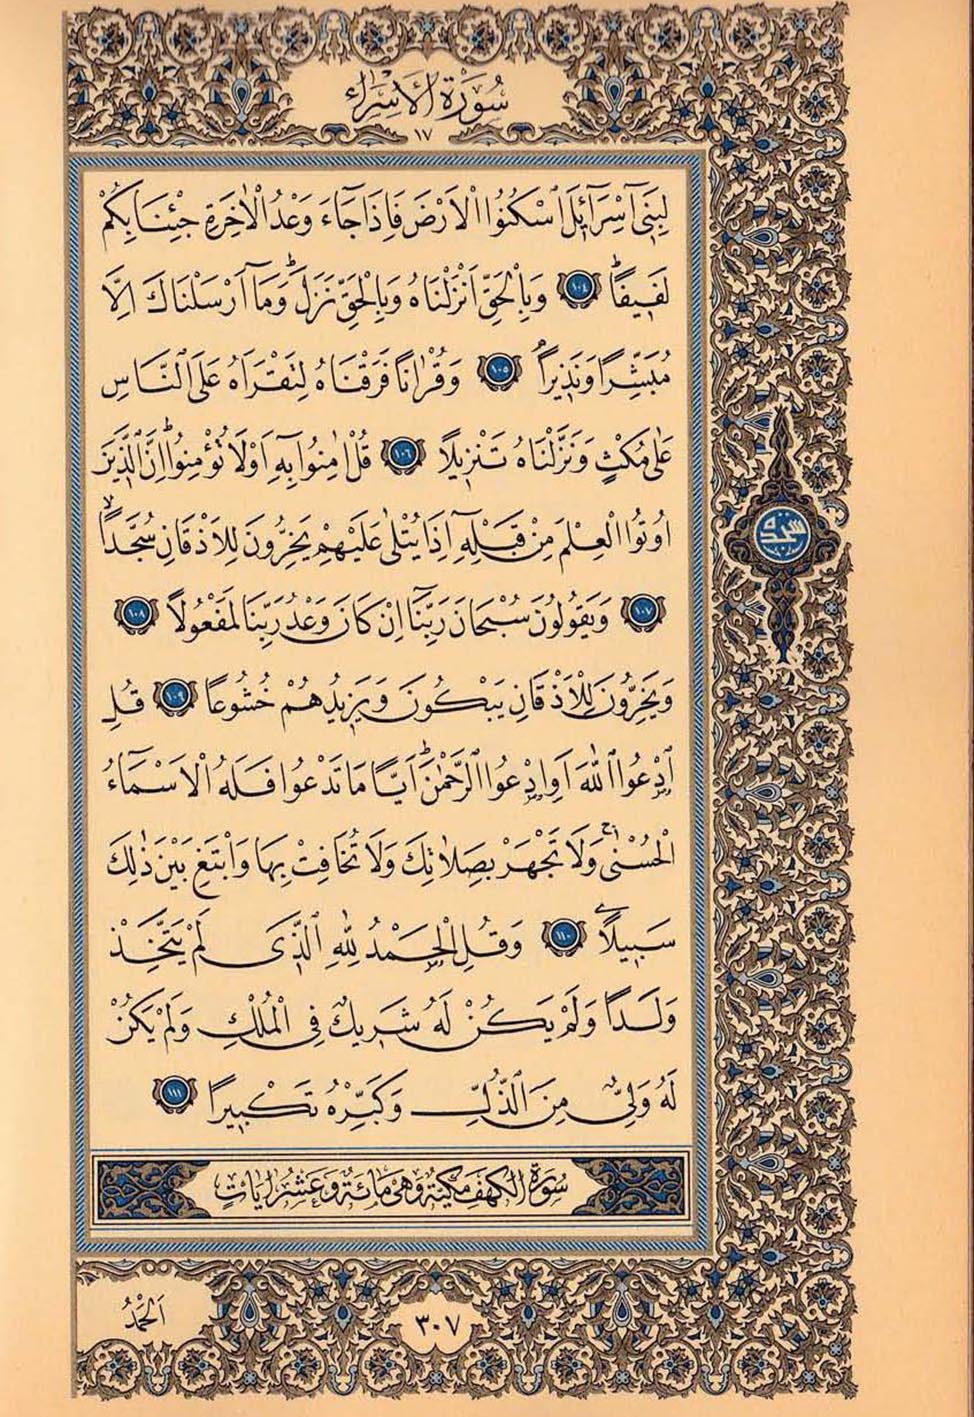 سُورَةُ الْاِسْرَاءِ
١٧
لِبَنٓى اِسْرَٓائٖلَ اسْكُنُوا الْاَرْضَ فَاِذَا جَٓاءَ وَعْدُ الْاٰخِرَةِ جِئْنَا بِكُمْ
لَفٖيفًاؕ ١٠٤ وَبِالْحَقِّ اَنْزَلْنَاهُ وَبِالْحَقِّ نَزَلَؕ وَمَٓا اَرْسَلْنَاكَ اِلَّا
مُبَشِّرًا وَنَذٖيرًاۘ ١٠٥ وَقُرْاٰنًا فَرَقْنَاهُ لِتَقْرَاَهُ عَلَى النَّاسِ
عَلٰى مُكْثٍ وَنَزَّلْنَاهُ تَنْزٖيلًا ١٠٦ قُلْ اٰمِنُوا بِهٖٓ اَوْ لَا تُؤْمِنُواؕ اِنَّ الَّذٖينَ
اُو۫تُوا الْعِلْمَ مِنْ قَبْلِهٖٓ اِذَا يُتْلٰى عَلَيْهِمْ يَخِرُّونَ لِلْاَذْقَانِ سُجَّدًاۙ
١٠٧ وَيَقُولُونَ سُبْحَانَ رَبِّنَٓا اِنْ كَانَ وَعْدُ رَبِّنَا لَمَفْعُولًا ١٠٨
وَيَخِرُّونَ لِلْاَذْقَانِ يَبْكُونَ وَيَزٖيدُهُمْ خُشُوعًا ١٠٩ قُلِ
ادْعُوا اللّٰهَ اَوِ ادْعُوا الرَّحْمٰنَؕ اَيًّا مَا تَدْعُوا فَلَهُ الْاَسْمَٓاءُ
الْحُسْنٰىۚ وَلَا تَجْهَرْ بِصَلَاتِكَ وَلَا تُخَافِتْ بِهَا وَابْتَغِ بَيْنَ ذٰلِكَ
سَبٖيلًا ١١٠ وَقُلِ الْحَمْدُ لِلّٰهِ الَّذٖى لَمْ يَتَّخِذْ
وَلَدًا وَلَمْ يَكُنْ لَهُ شَرٖيكٌ فِى الْمُلْكِ وَلَمْ يَكُنْ
لَهُ وَلِىٌّ مِنَ الذُّلِّ وَكَبِّرْهُ تَكْبٖيرًا ١١١
سُورَةُ الْكَهْفِ مَكِّيَّةٌ وَهِىَ مِائَةٌ وَعَشْرُ اٰيَاتٍ
سجده
اَلْحَمْدُ
٣٠٧